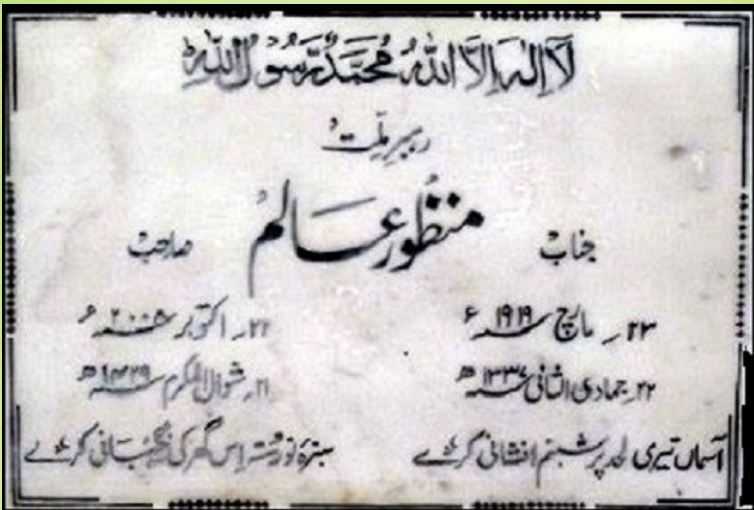 لَا اِلٰہَ اِلَّا اللّٰہُ مُحَمَّدٌ رَّسُوْلُ اللّٰہِ
رہبرِ ملت
جناب منظور عالم صاحب
۲۳؍ مارچ ۱۹۱۹ء ۲۲؍ اکتوبر ۲۰۰۸ء
۲۲؍ جمادی الثانی ۱۳۳۷ھ ۲۱؍ شوال المکرم ۱۴۲۹ھ
آسماں تیری لحد پر شبنم افشانی کرے سبزۂ نورستہ اس گھر کی نگہبانی کرے